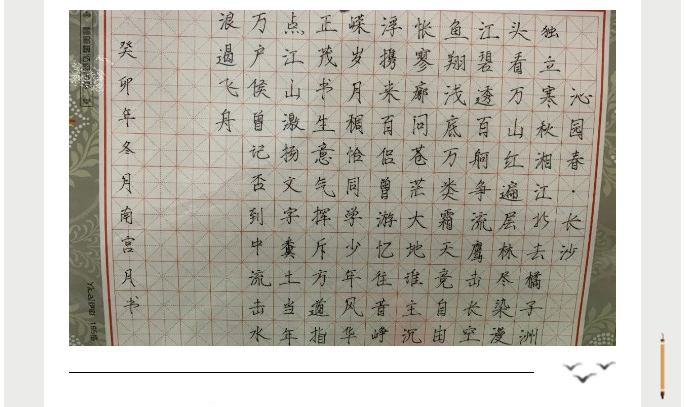 沁园春·长沙
独立寒秋湘江北去橘子洲
头看万山红遍层林尽染漫
江碧透百舸争流鹰击长空
鱼翔浅底万类霜天竞自由
怅寥廓问苍茫大地谁主沉
浮携来百侣曾游忆往昔峥
嵘岁月稠恰同学少年风华
正茂书生意气挥斥方遒指
点江山激扬文字粪土当年
万户侯曾记否到中流击水
浪遏飞舟
癸卯年冬月南宫月书